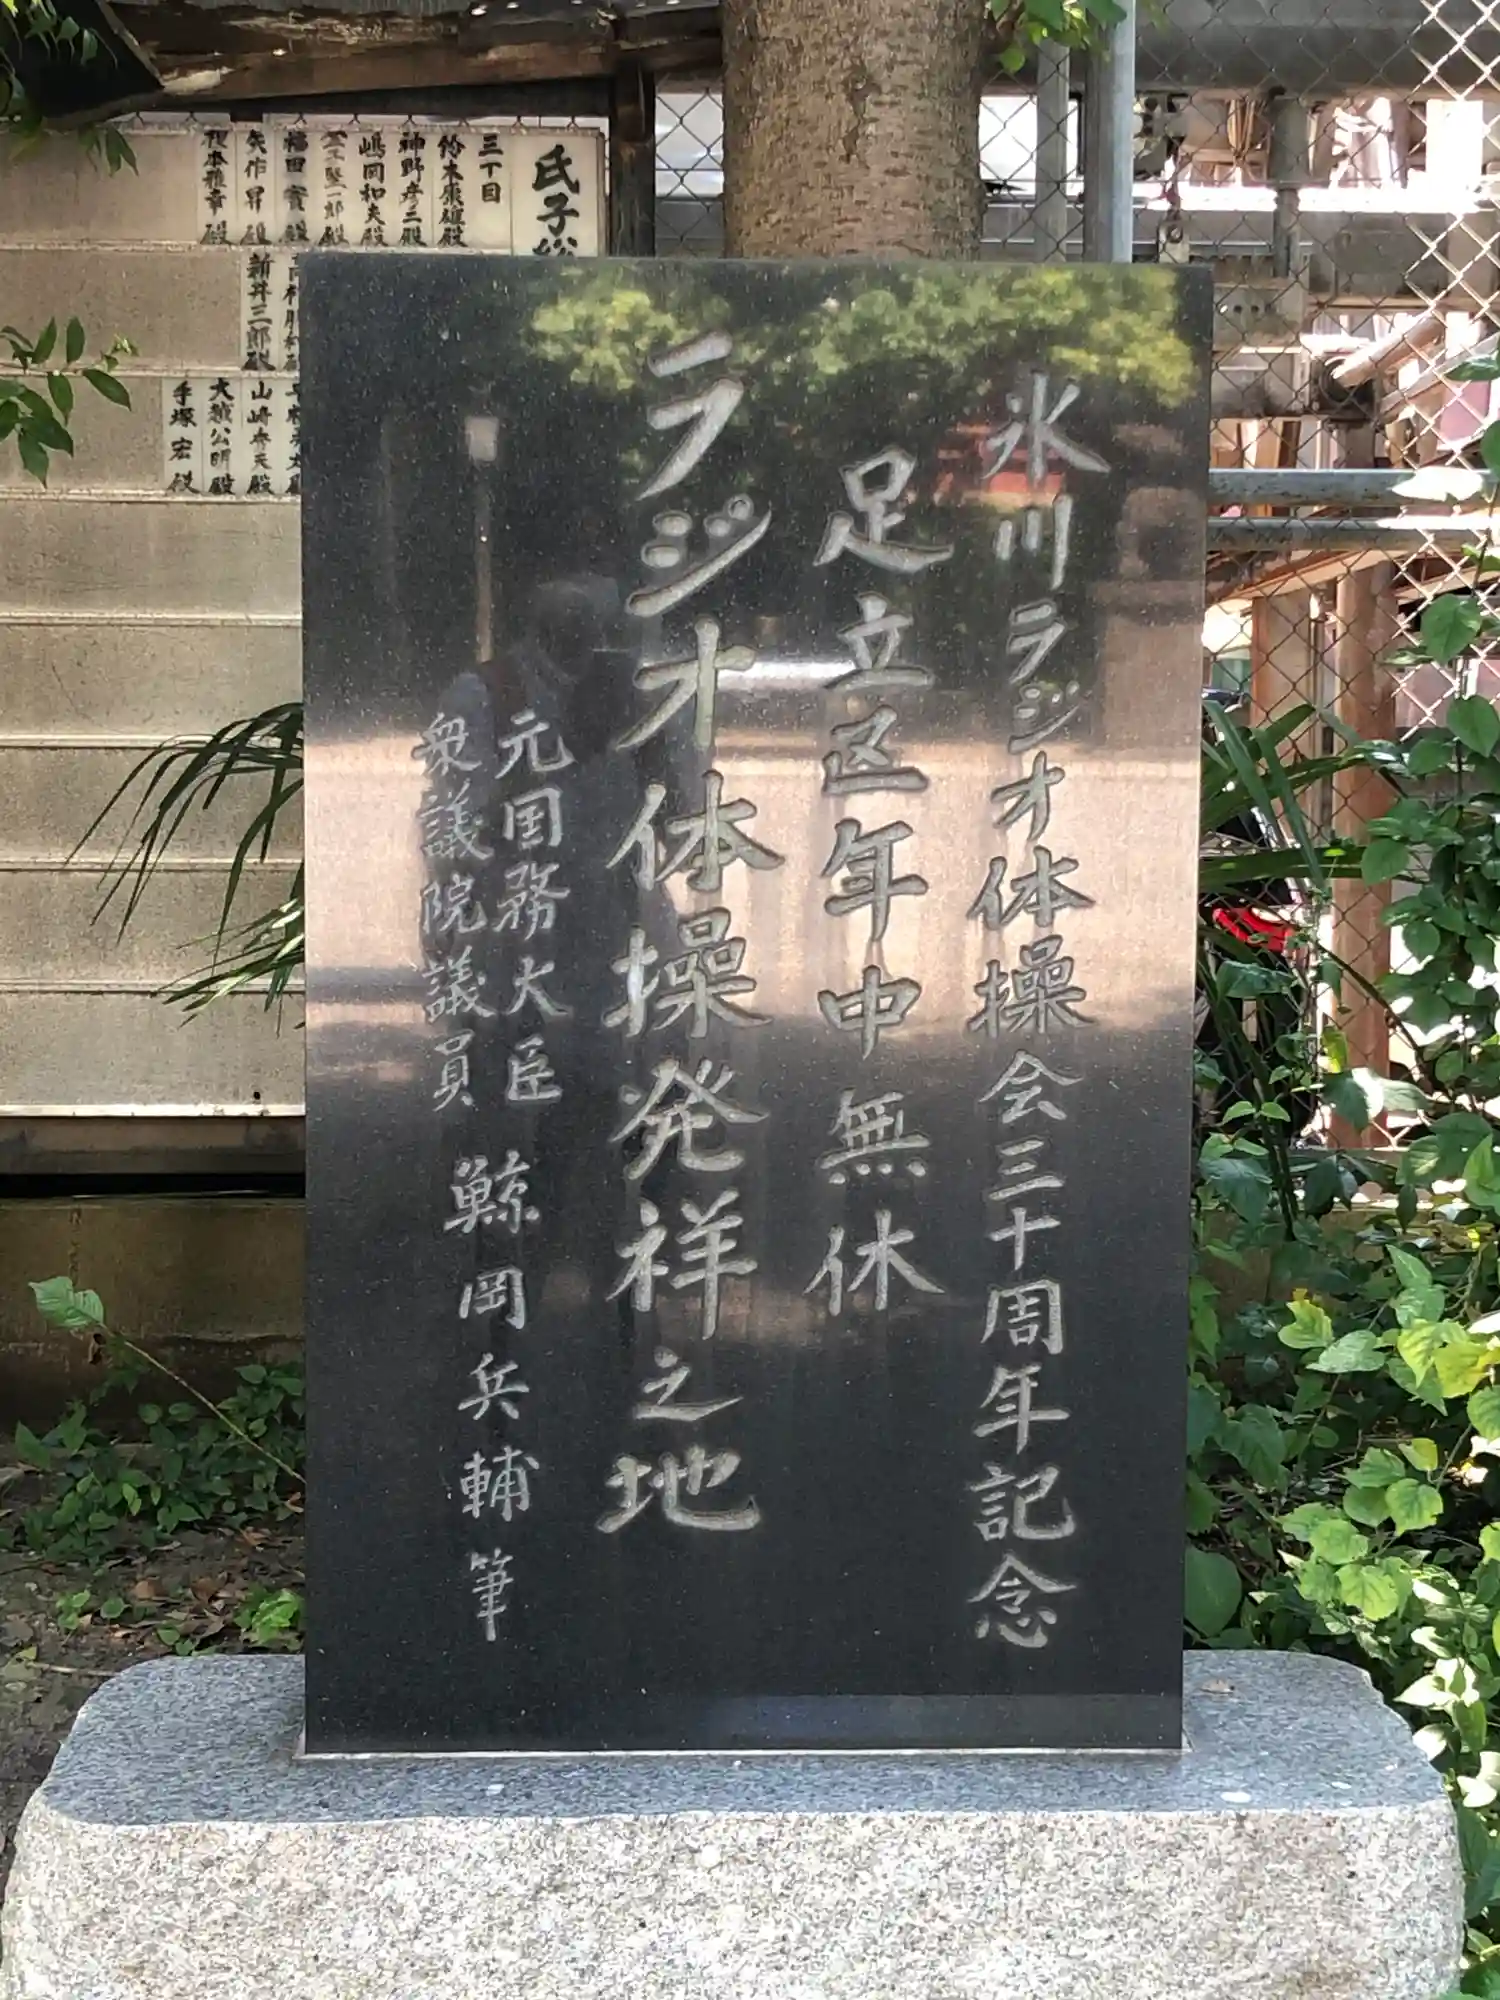 氷川ラジオ体操会三十周年記念
足立区年中無休
ラジオ体操発祥之地
元国務大臣
衆議院議員
鯨岡兵輔筆
氏子総
三丁目
鈴木康雄殿
神野彦三殿
嶋岡和夫殿
福田實殿
矢作昇殿
新井三郎殿
山崎泰夫殿
大越公明殿
手塚宏殿